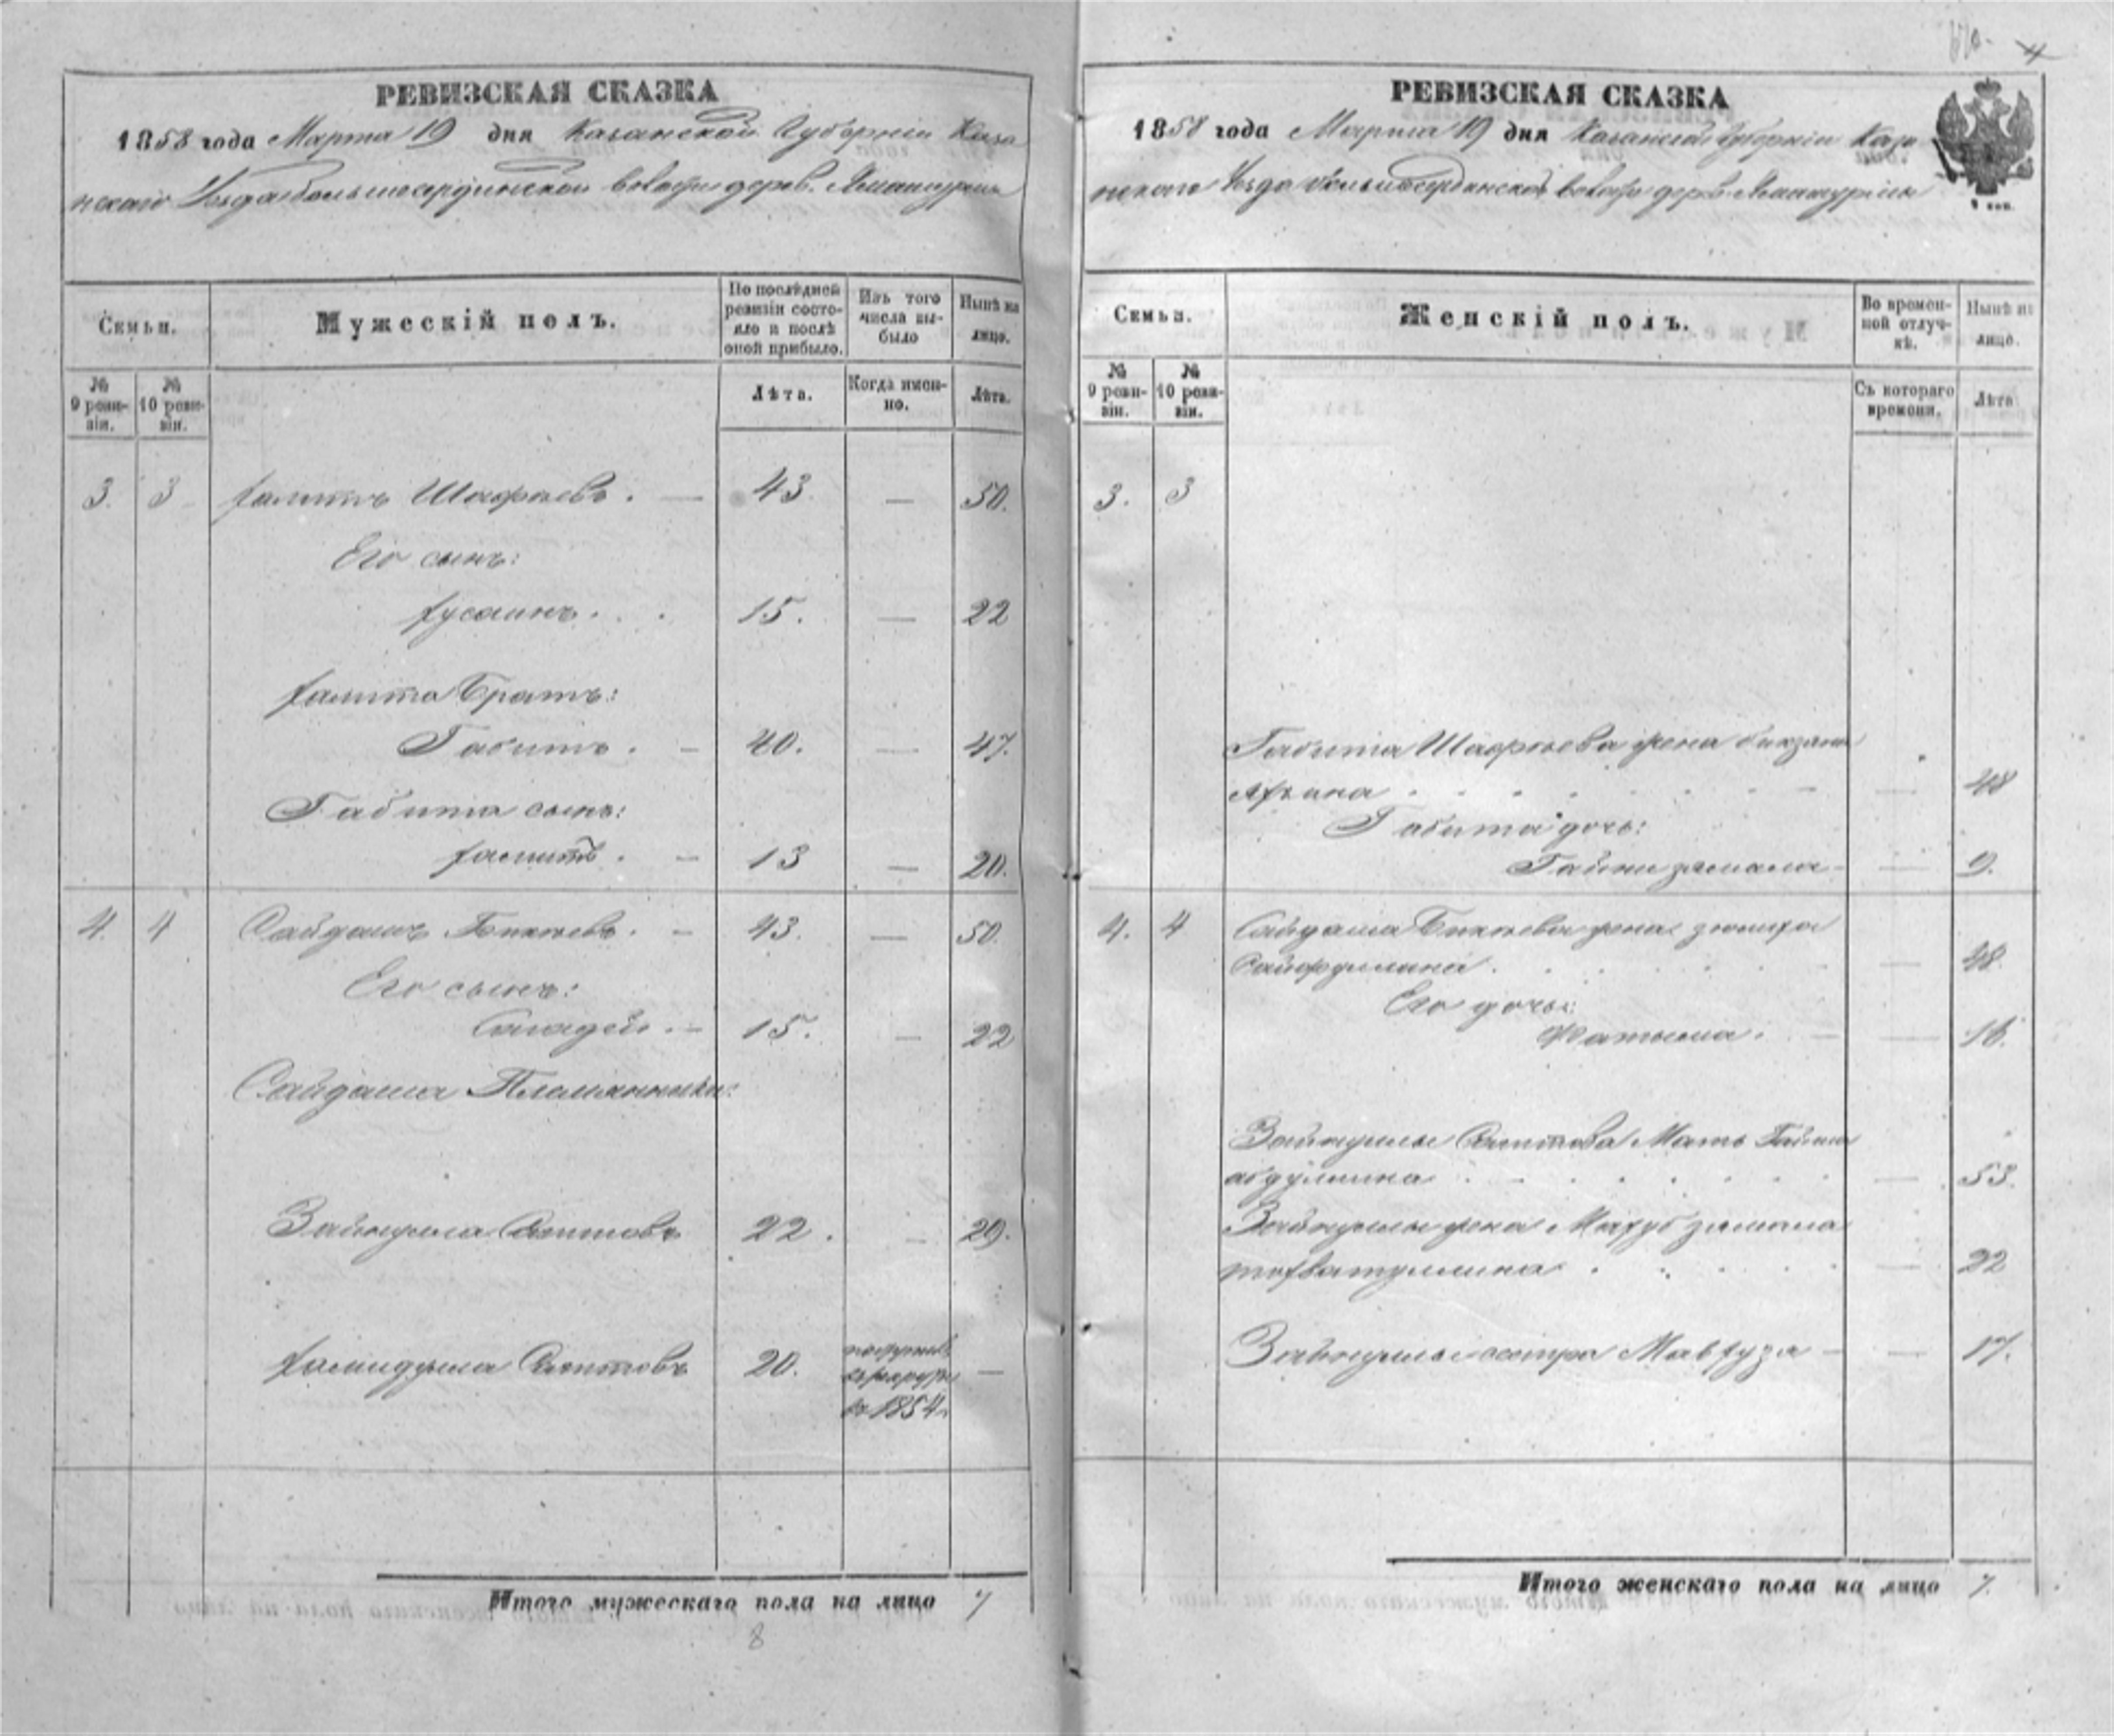 РЕВИЗСКАЯ СКАЗКА
1858 года Марта 19 дня Казанской Губерніи Каза
нскаго Уѣзда Большесердинской волости дерев.
Семьи.
Мужескій полъ.
По послѣдней ревизіи состояло и послѣ оной прибыло.
Изъ того числа выбыло
Нынѣ на лицо.
№ 9 ревизіи.
№ 10 ревизіи.
Лѣта.
Когда именно.
Лѣта.
3. 3 Халитъ Шафѣевъ. — 43 — 50.
Его сынъ:
Хусаинъ. . 15. — 22
Халита Братъ:
Габитъ. — 40. — 47.
Габита сынъ:
Хамитъ. — 13 — 20.
4. 4 Сайдашъ Бикѣевъ. — 43. — 50.
Его сынъ:
15. — 22
Сайдаша Племянники:
Зайнулла Саитовъ 22. — 29.
Хамидулла Саитовъ 20. —
въ 1854
Итого мужескаго пола на лицо 7
8
4
РЕВИЗСКАЯ СКАЗКА
1858 года Марта 19 дня Казанской Губерніи Каза
нскаго Уѣзда Большесердинской волости дерев.
Семьи.
Женскій полъ.
Во временной отлучкѣ.
Нынѣ на лицо.
№ 9 ревизіи.
№ 10 ревизіи.
Съ котораго времени.
Лѣта
3. 3
Габита Шафѣева жена
— 48
Габита дочь:
Гайнизямала — — 9.
4. 4 Сайдаша Бикѣева жена Зюлиха
Сайфуллина — 48.
Его дочь:
Фатыма. — — 16.
Зайнуллы Саитова Мать
Абдуллина — 53.
Зайнуллы жена Махубзямала
Тохватуллина — 22
Зайнуллы сестра Мавхуза — — 17.
Итого женскаго пола на лицо 7.